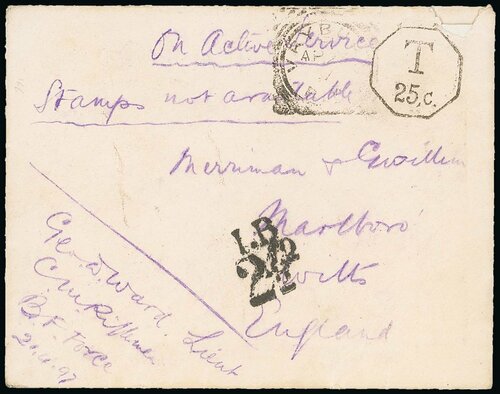 On Active Service
Stamps not available
AP
T
25.c.
Merriman & Gwillim
Marlboro'
Wilts
England
I.B.
2½
Geo. W. Ward
Lieut
B.F. Force